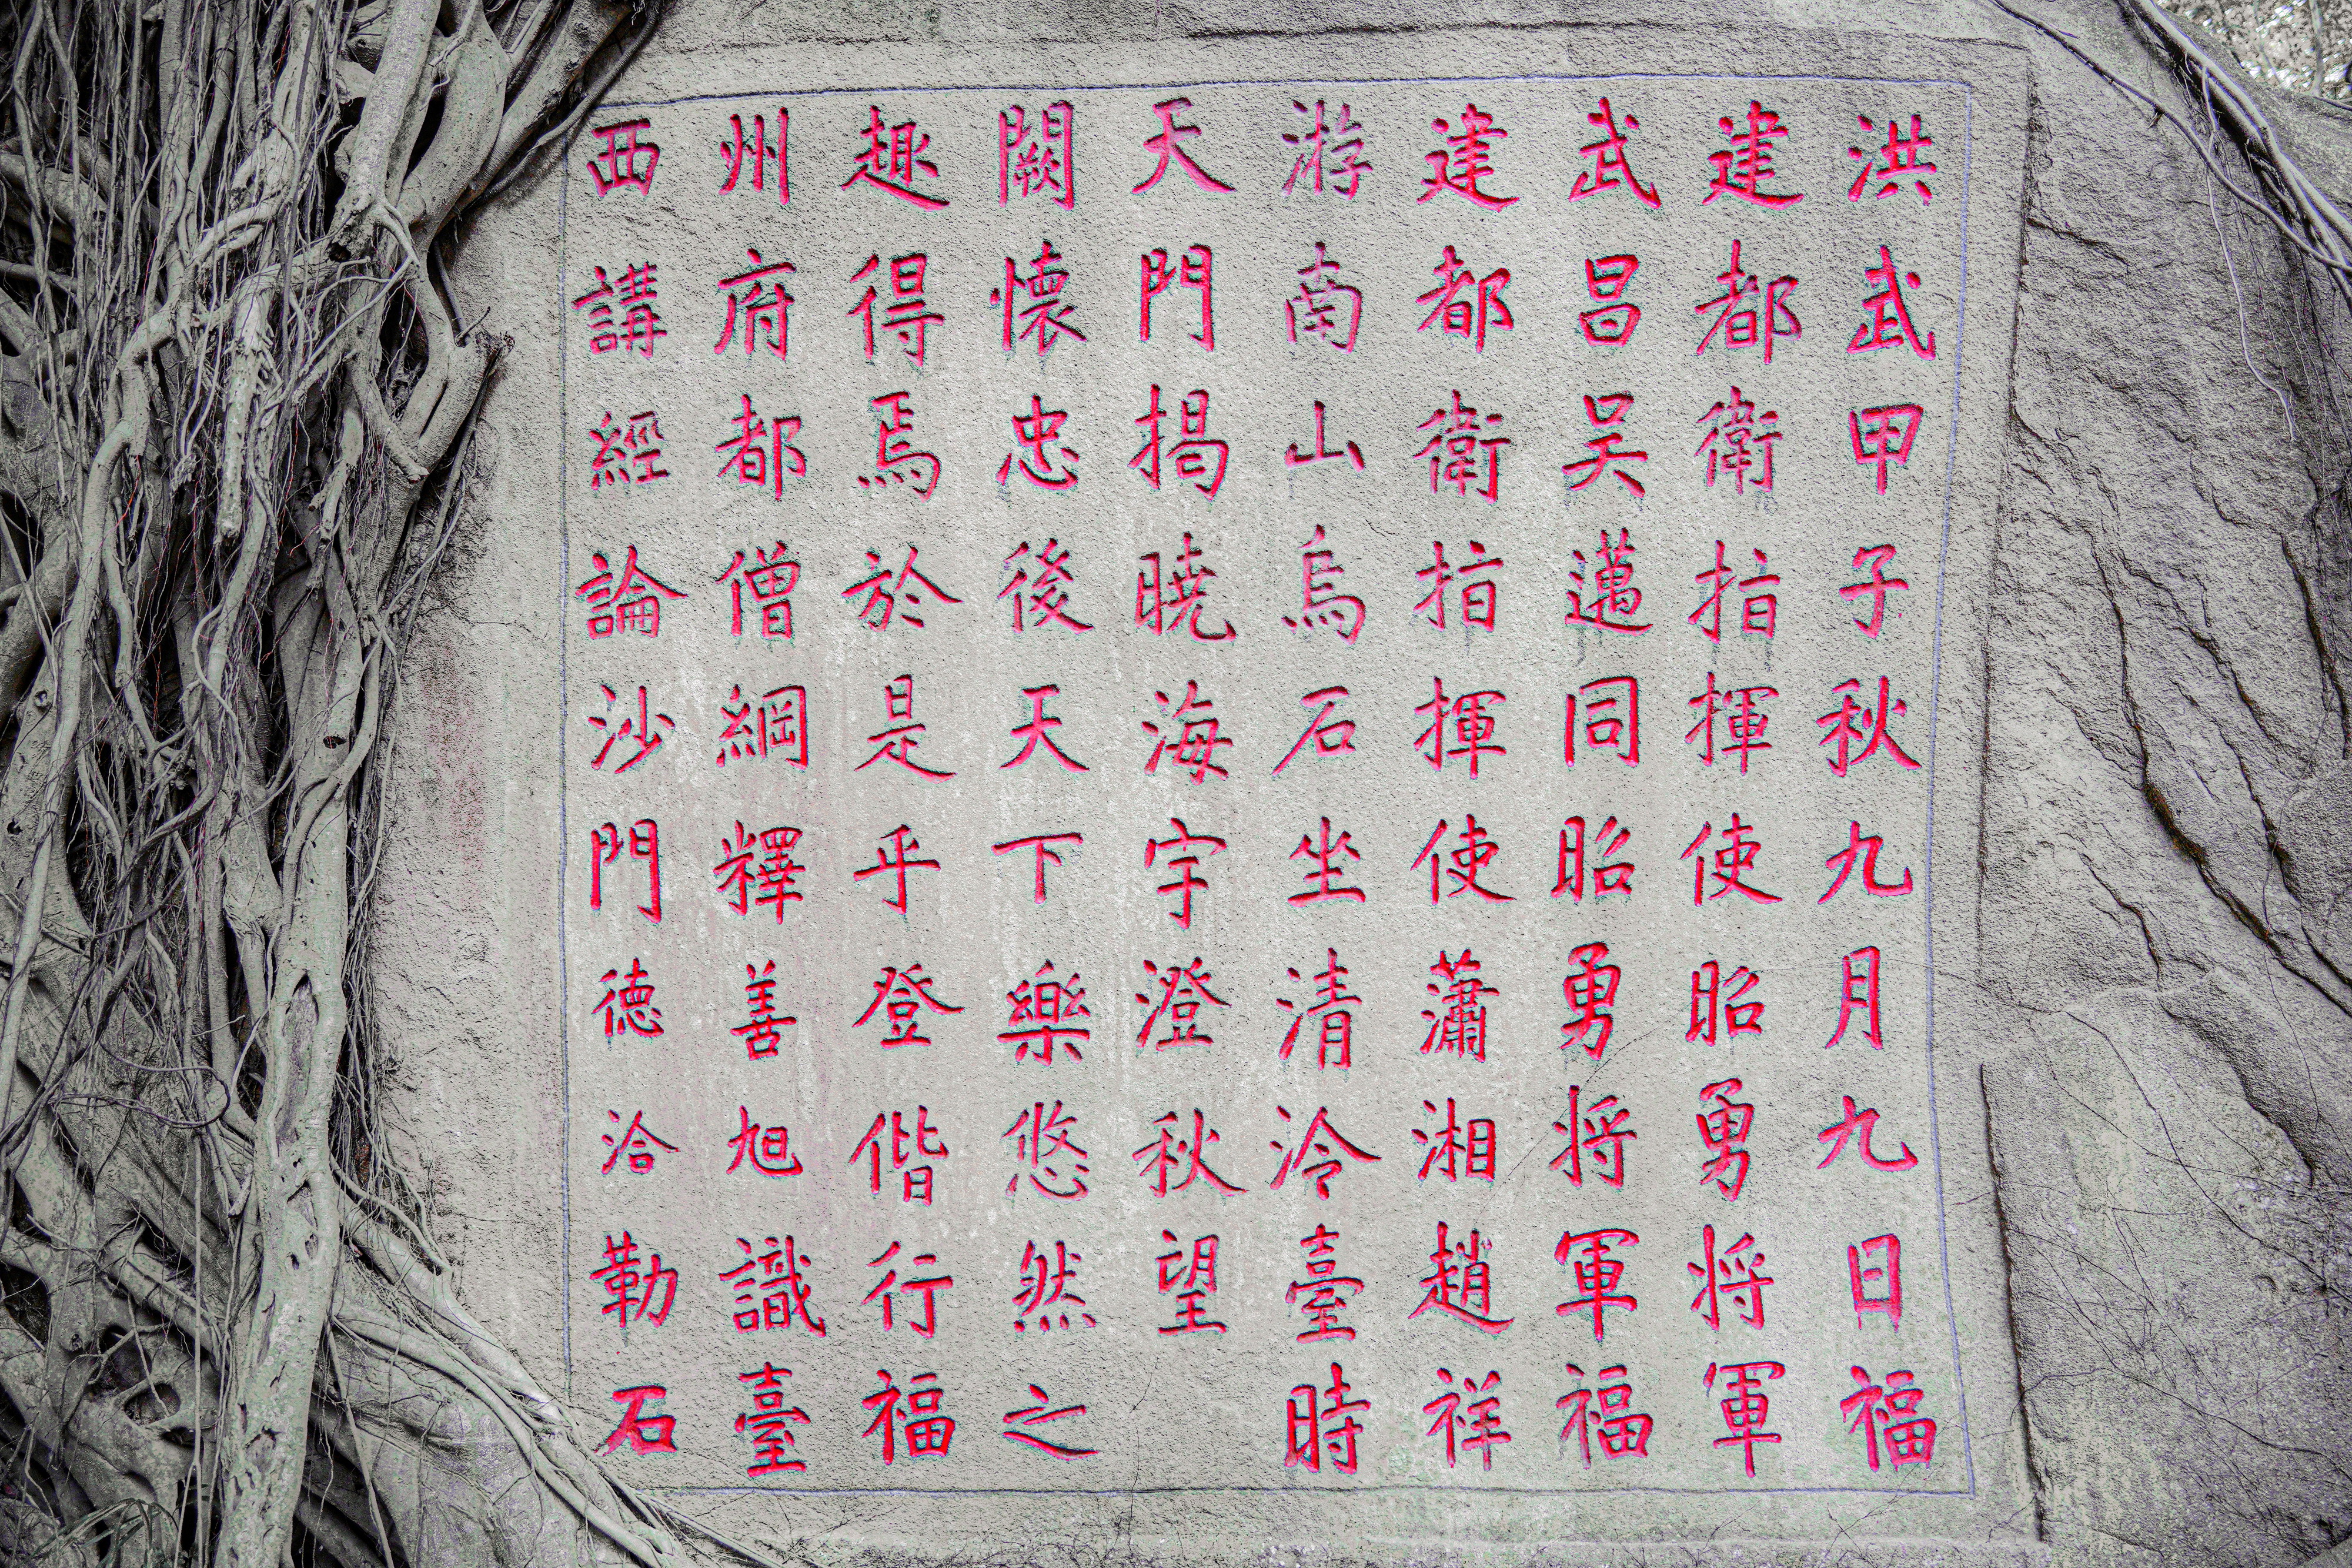 洪武甲子秋九月九日福
建都衛指揮使昭勇將軍
武昌吴邁同昭勇將軍福
建都衛指揮使瀟湘趙祥
游南山烏石坐清泠臺時
天門揭曉海宇澄秋望
闕懷忠後天下樂悠然之
趣得焉於是乎登偕行福
州府都僧綱釋善旭識臺
西講經論沙門德洽勒石